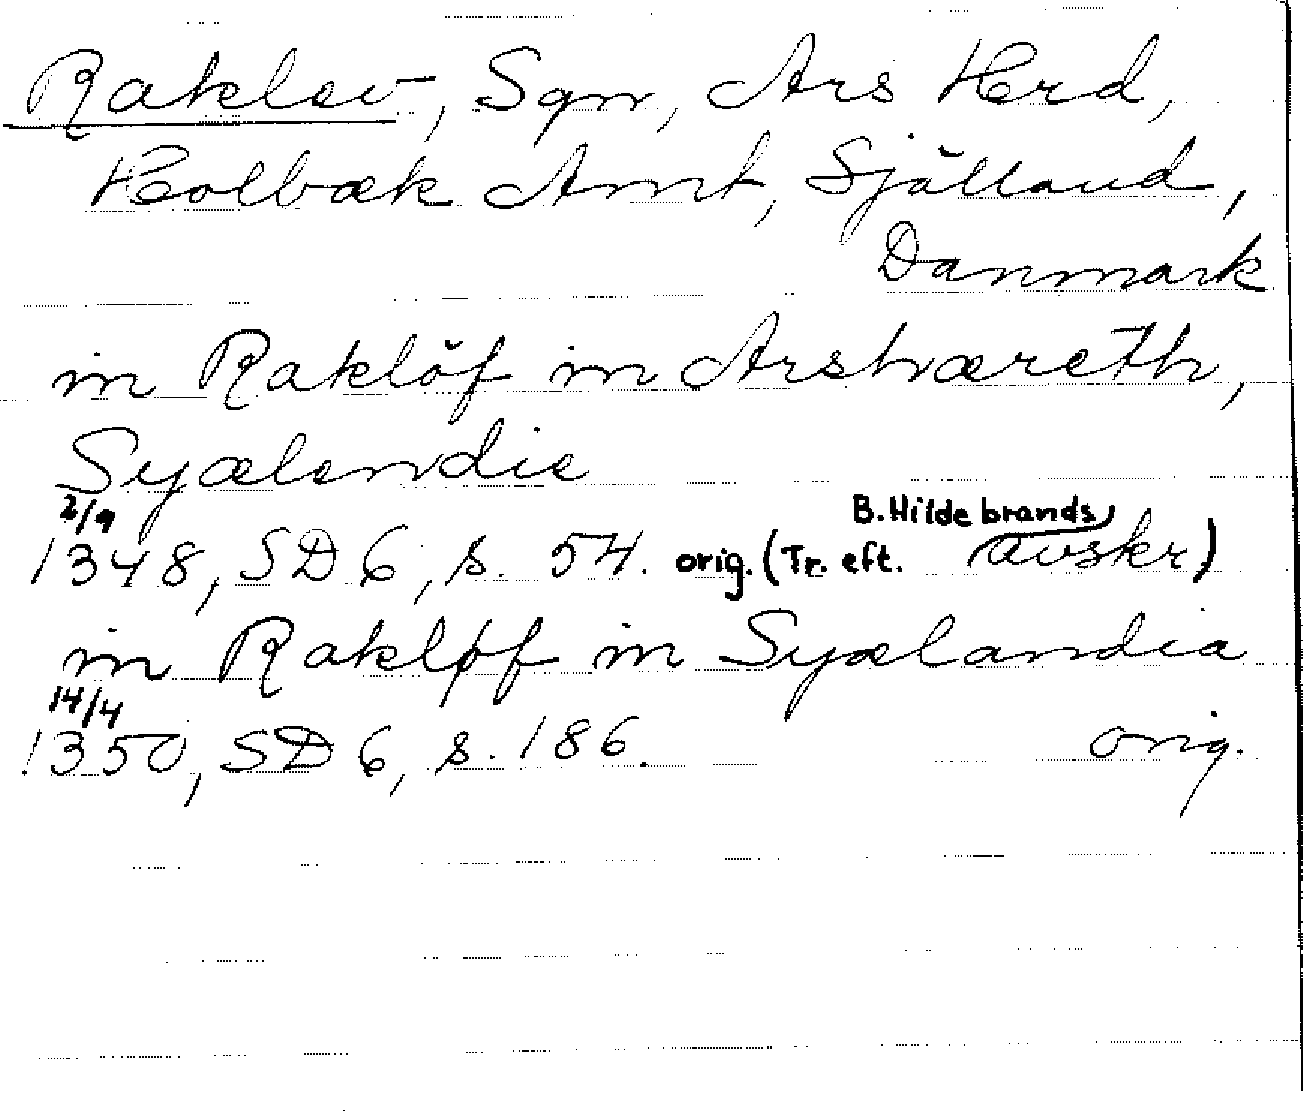 Raklev, Sgn, Ars Herd,
Holbæk Amt, Själland,
Danmark
in Raklöf in Arshæreth,
Syælandie
2/9
1348, SD 6, s. 54. orig. (Tr. eft. B. Hildebrands avskr)
in Rakløf in Syælandia
14/4
1350, SD 6, s. 186. orig.